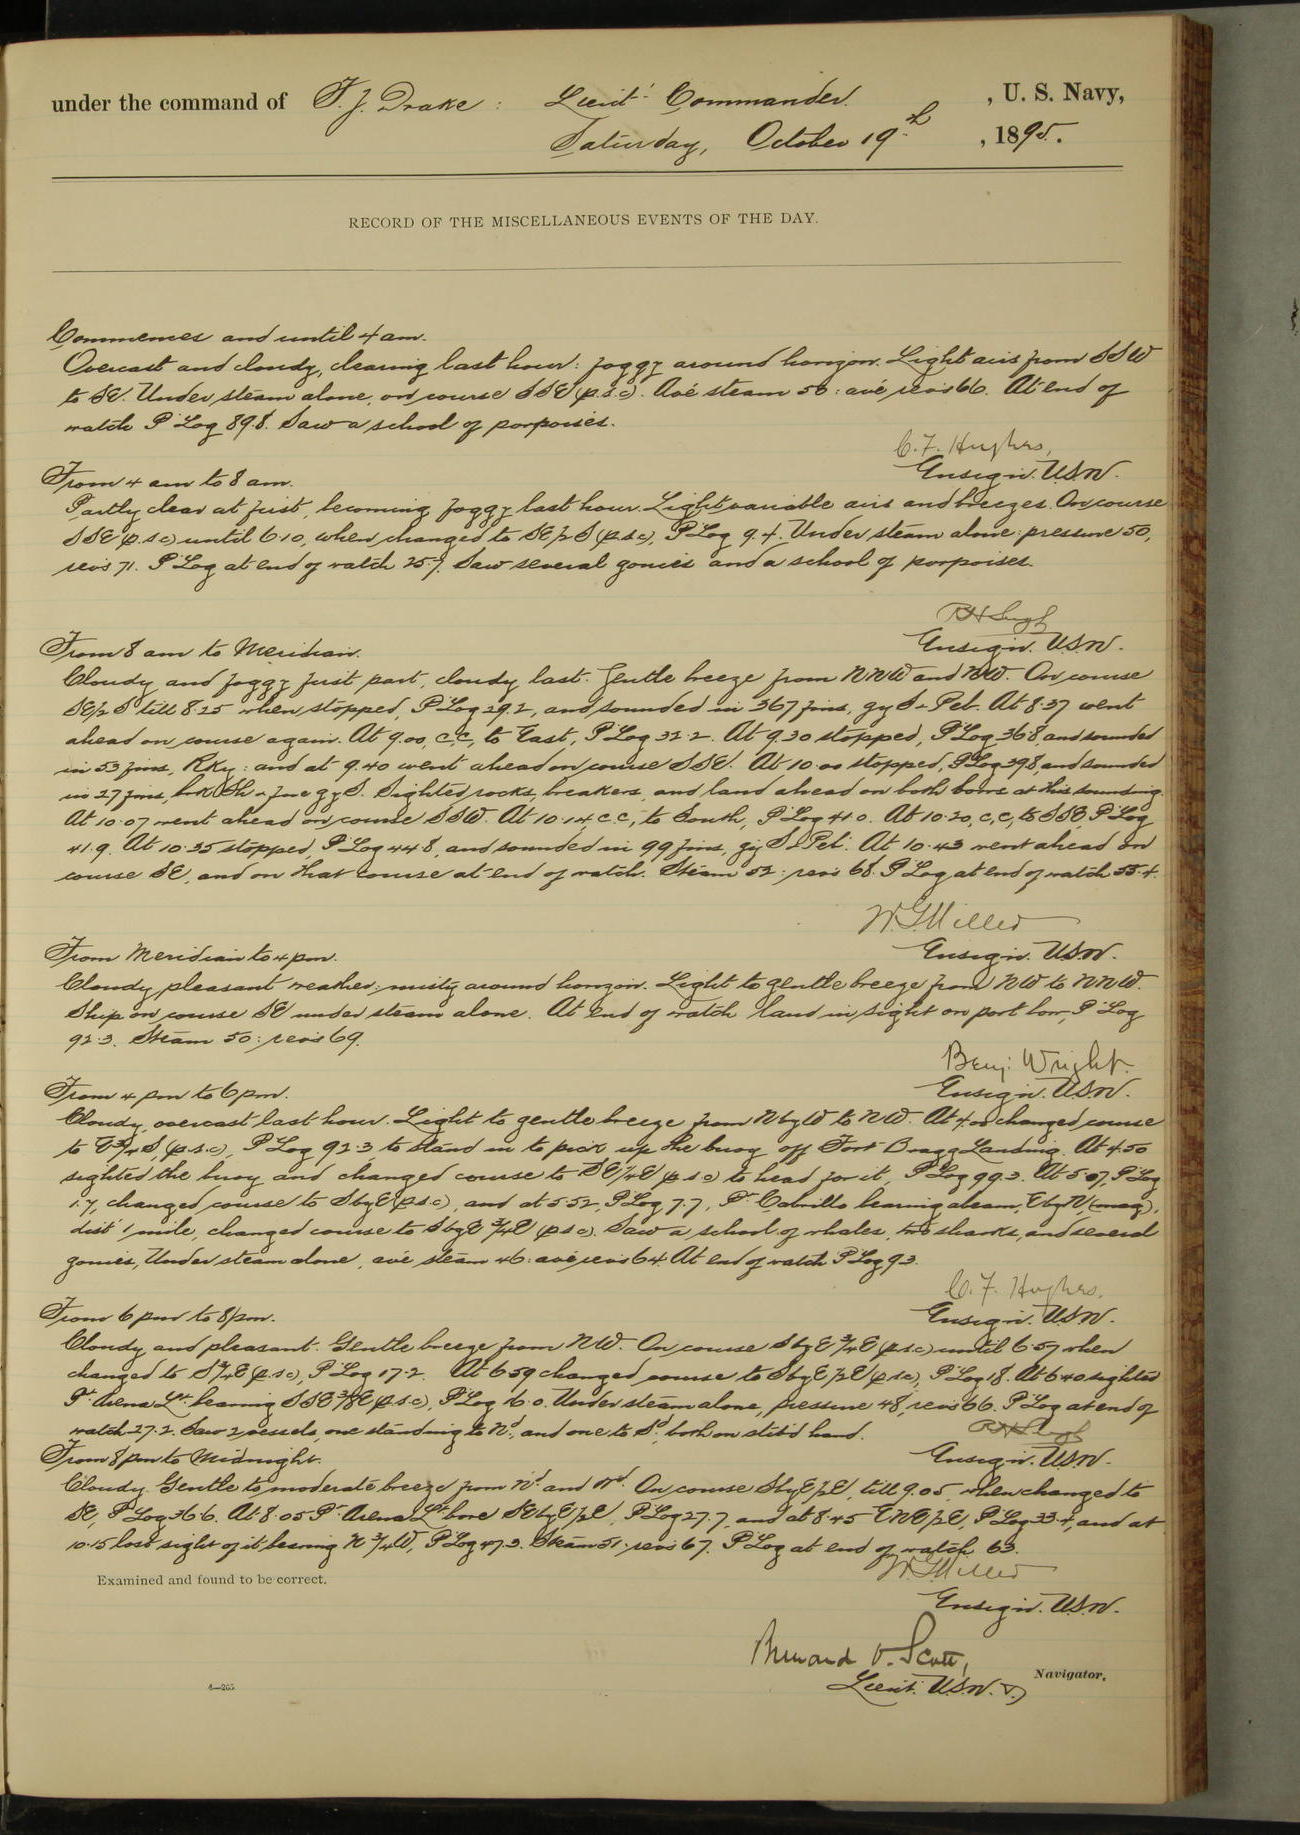 under the command of F. J. Drake : Lieut. Commander. , U. S. Navy,
Saturday, October 19th , 1895.
RECORD OF THE MISCELLANEOUS EVENTS OF THE DAY.
Commences and until 4 am.
Overcast and cloudy, clearing last hour: foggy around horizon. Light airs from SSW
to SE. Under steam alone, on course SSE (p.s.c). Ave steam 50: ave revs 66. At end of
watch P. Log 89.8. Saw a school of porpoises.
C. F. Hughes,
Ensign. U.S.N.
From 4 am to 8 am.
Partly clear at first, becoming foggy last hour. Light variable airs and breezes. On course
SSE (p.s.c) until 6.10, when changed to SE½S (p.s.c), P. Log 9.4. Under steam alone: pressure 50,
revs 71. P. Log at end of watch 25.7. Saw several gonies and a school of porpoises.
Ensign. U.S.N.
From 8 am to Meridian.
Cloudy and foggy first part, cloudy last. Gentle breeze from NNW and NW. On course
SE½S till 8.25 when stopped, P. Log 29.2, and sounded in 367 fms, gy S & Peb. At 8.37 went
ahead on course again. At 9.00, c.c, to East, P. Log 32.2. At 9.30 stopped, P. Log 36.8, and sounded
in 53 fms, Rky: and at 9.40 went ahead on course SSE. At 10.00 stopped, P. Log 39.8, and sounded
in 27 fms, brk Sh & fne gy S. Sighted rocks, breakers, and land ahead on both bows at this sounding.
At 10.07 went ahead on course SSW. At 10.14, c.c, to South, P. Log 41.0. At 10.20, c.c, to SSE, P. Log
41.9. At 10.35 stopped, P. Log 44.8, and sounded in 99 fms, gy S & Peb. At 10.43 went ahead on
course SE, and on that course at end of watch. Steam 52: revs 68. P. Log at end of watch 55.4.
W. G. Miller
Ensign. U.S.N.
From Meridian to 4 pm.
Cloudy pleasant weather: misty around horizon. Light to gentle breeze from NW to NNW.
Ship on course SE under steam alone. At end of watch land in sight on port bow, P. Log
92.3. Steam 50: revs 69.
Benj. Wright.
Ensign. U.S.N.
From 4 pm to 6 pm.
Cloudy, overcast last hour. Light to gentle breeze from N by W to NW. At 4.00 changed course
to E¾S, (p.s.c), P. Log 92.3 to stand in to pick up the buoy off Fort Bragg Landing. At 4.50
sighted the buoy and changed course to SE¼E (p.s.c) to head for it, P. Log 99.3. At 5.07, P. Log
1.7, changed course to S by E (p.s.c), and at 5.52, P. Log 7.7, Pt. Cabrillo bearing abeam, E by N, (mag),
dist 1 mile, changed course to S by E ¾ E (p.s.c). Saw a school of whales, two sharks, and several
gonies, Under steam alone, ave steam 46: ave revs 64. At end of watch P. Log 9.3.
C. F. Hughes.
Ensign. U.S.N.
From 6 pm to 8 pm.
Cloudy and pleasant. Gentle breeze from NW. On course S by E ¾ E (p.s.c) until 6.57 when
changed to S¾E (p.s.c), P. Log 17.2. At 6.59 changed course to S by E ½ E (p.s.c), P. Log 18. At 6.40 sighted
Pt. Arena Lt. bearing SSE⅜E (p.s.c), P. Log 16.0. Under steam alone, pressure 48, revs 66. P. Log at end of
watch 27.2. Saw 2 vessels, one standing to Nd, and one to Sd, both on stb'd hand.
Ensign. U.S.N.
From 8 pm to Midnight.
Cloudy. Gentle to moderate breeze from Nd and Wd. On course S by E ½ E, till 9.05, when changed to
SE, P. Log 36.6. At 8.05 Pt. Arena Lt. bore SE by E ½ E, P. Log 27.7, and at 8.45 ENE½E, P. Log 33.4, and at
10.15 lost sight of it, bearing N ¾ W, P. Log 47.3. Steam 51: revs 67. P. Log at end of watch 63.
W. G. Miller
Ensign. U.S.N.
Examined and found to be correct.
Lieut. U.S.N. Navigator.